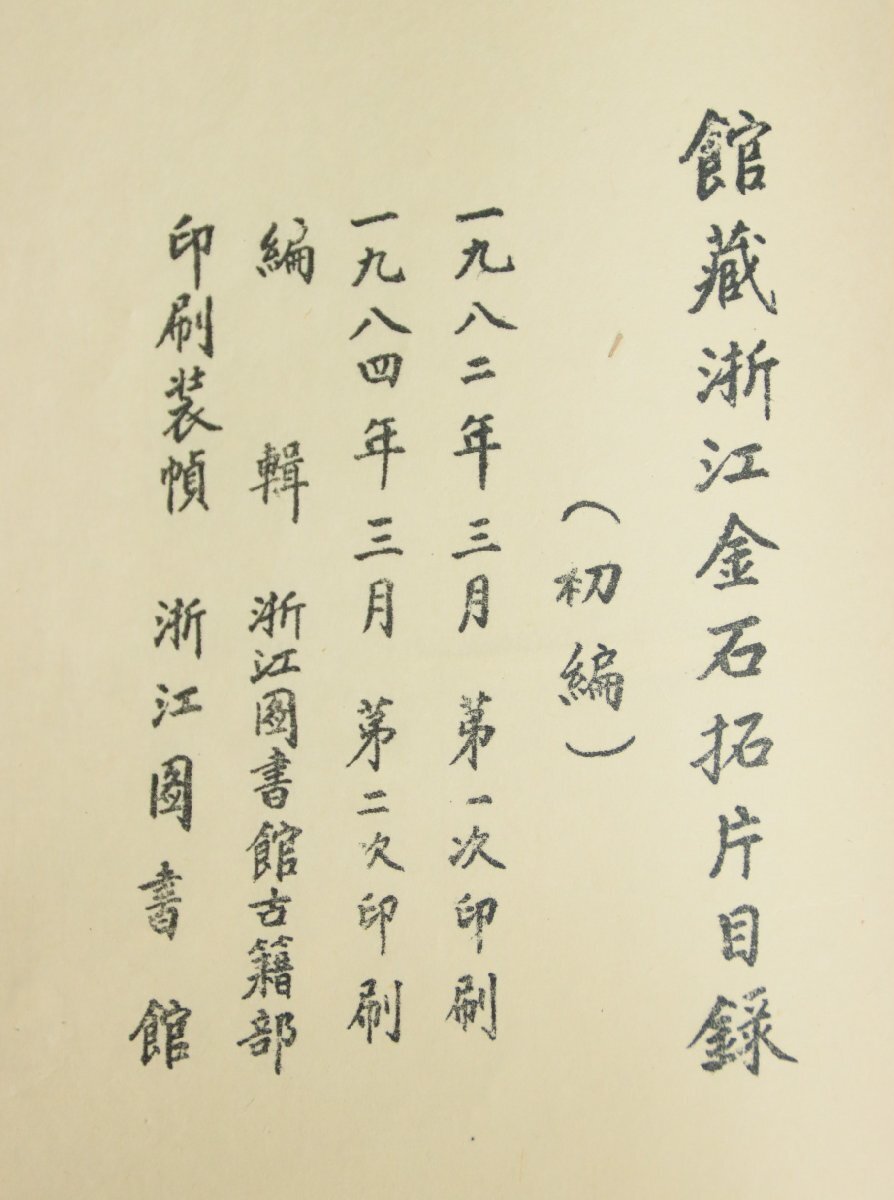 館藏浙江金石拓片目錄
（初編）
一九八二年三月 第一次印刷
一九八四年三月 第二次印刷
編輯 浙江圖書館古籍部
印刷装幀 浙江圖書館